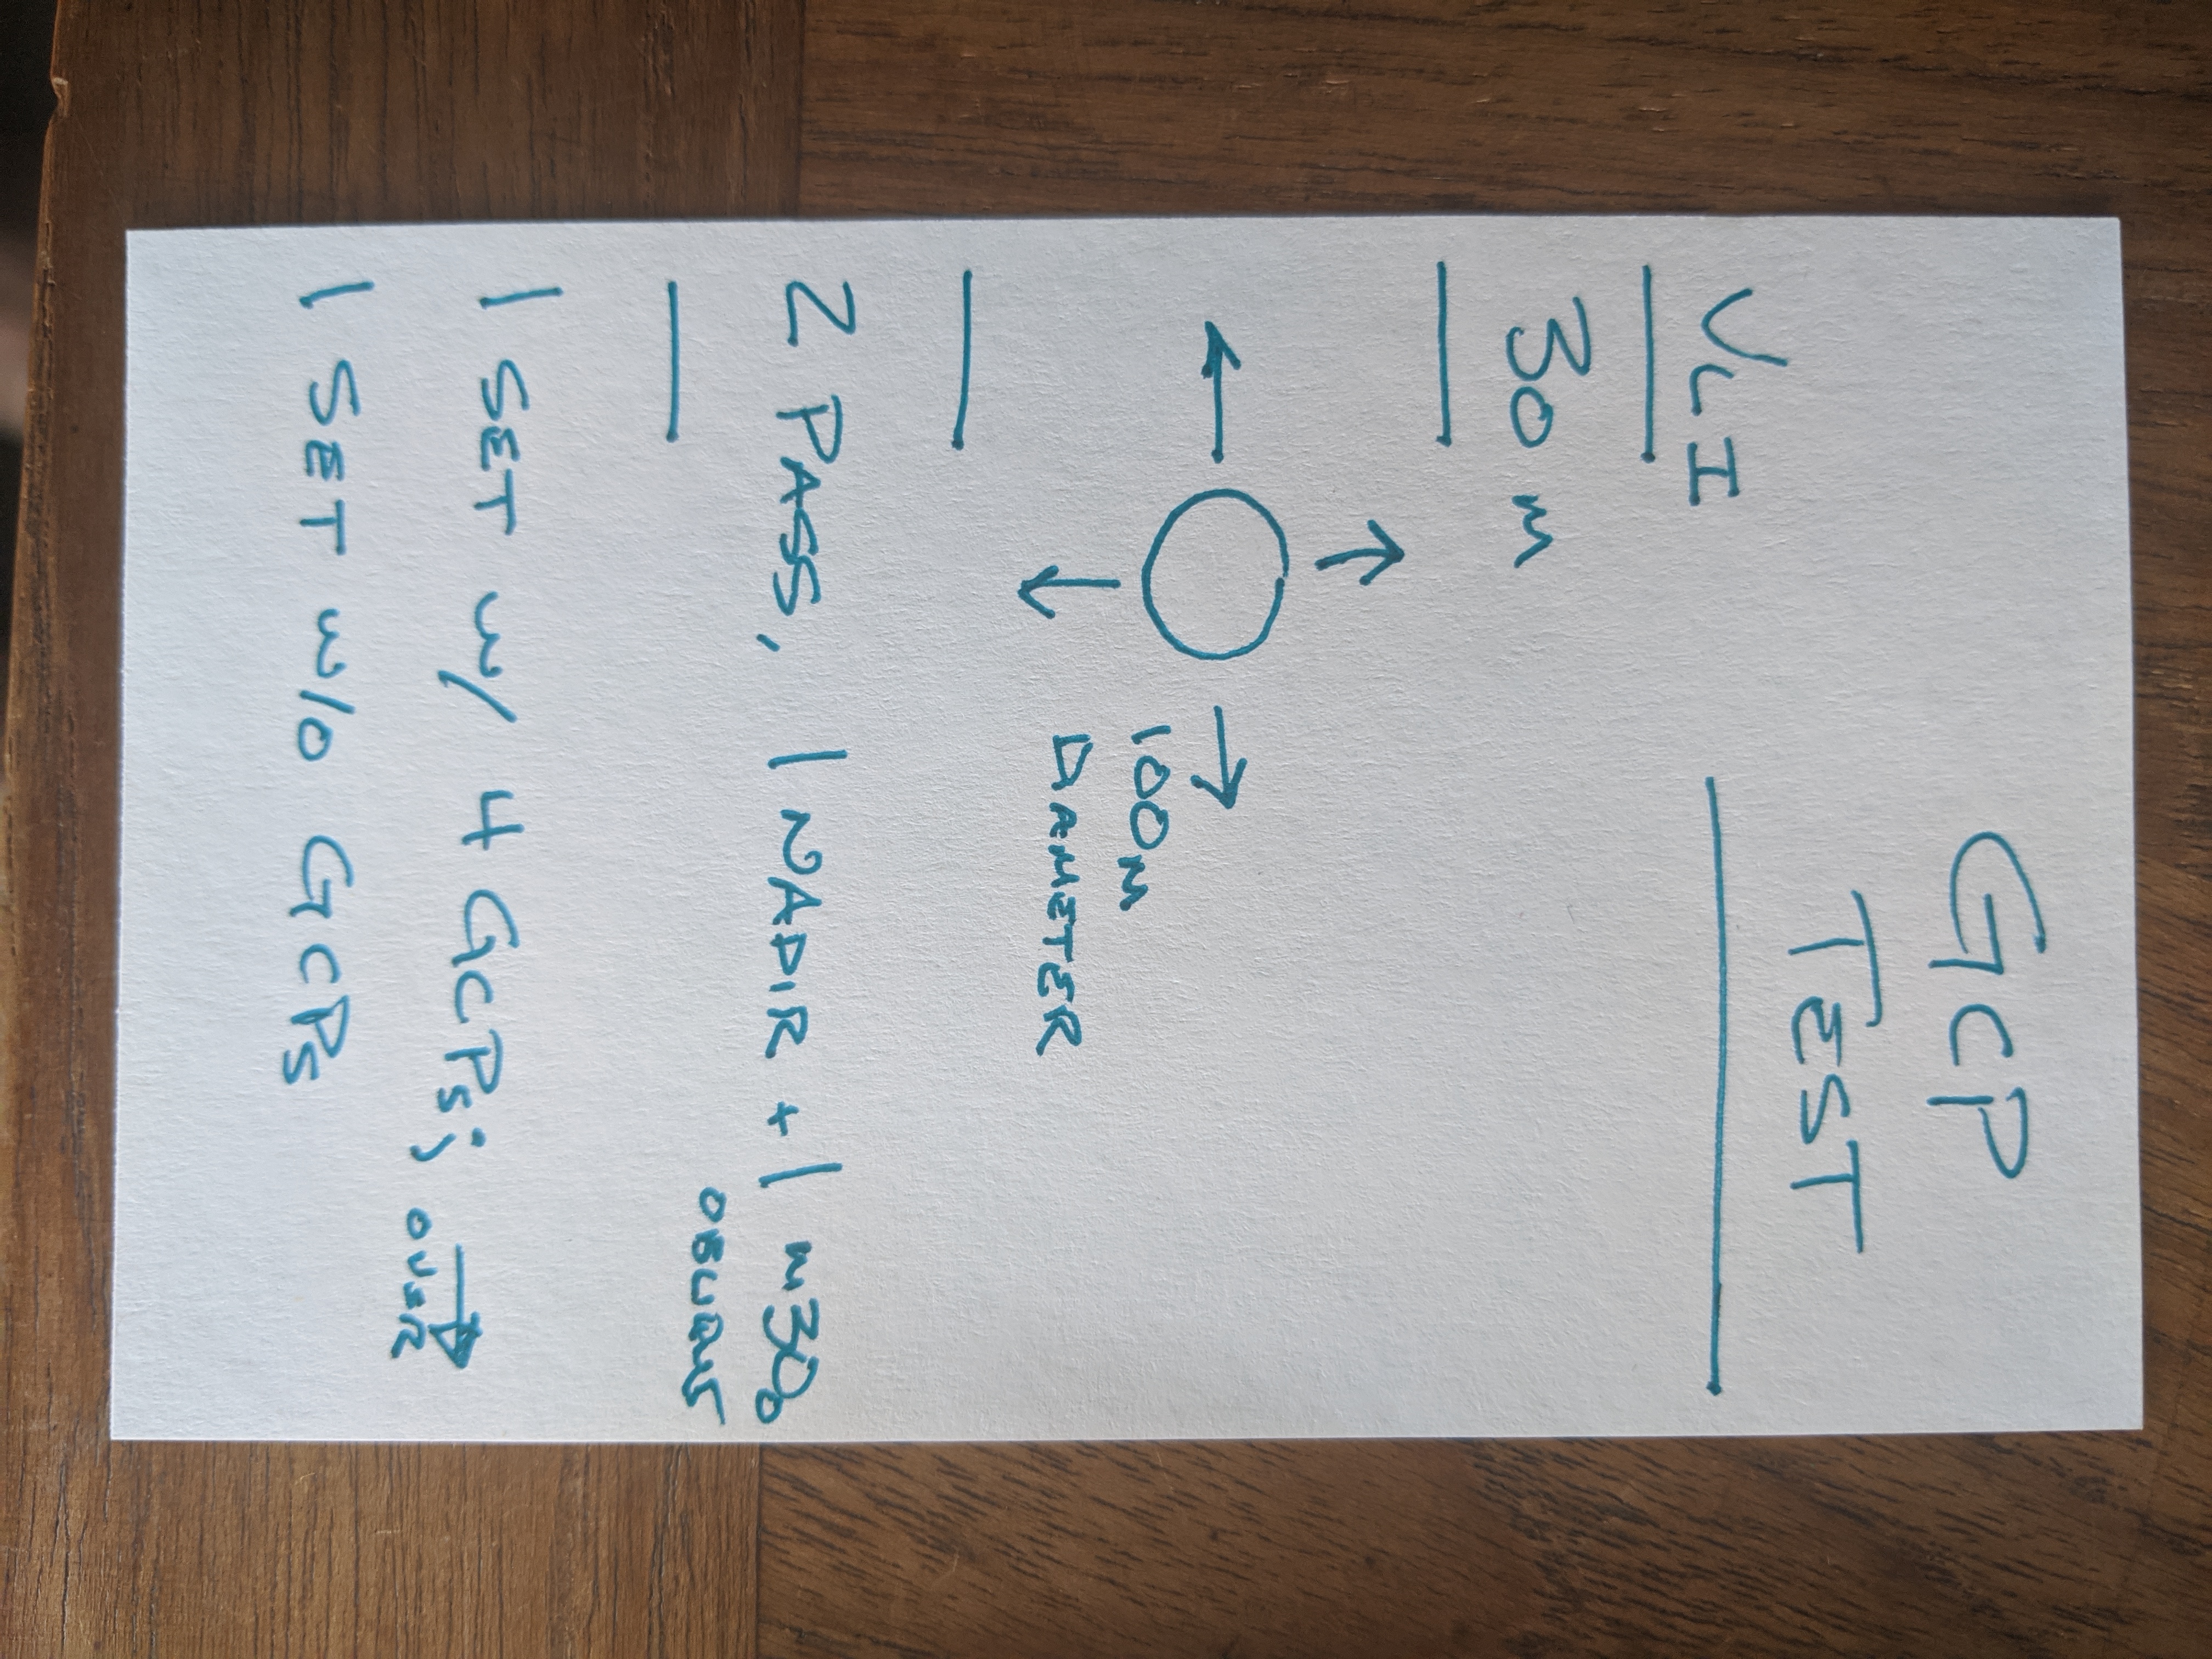 GCP
TEST
VLI
30 m
100m
DIAMETER
2 PASS, 1 NADIR + 1 m30°
OBLIQUE
1 SET w/ 4 GCPs; OVER
1 SET w/o GCPs